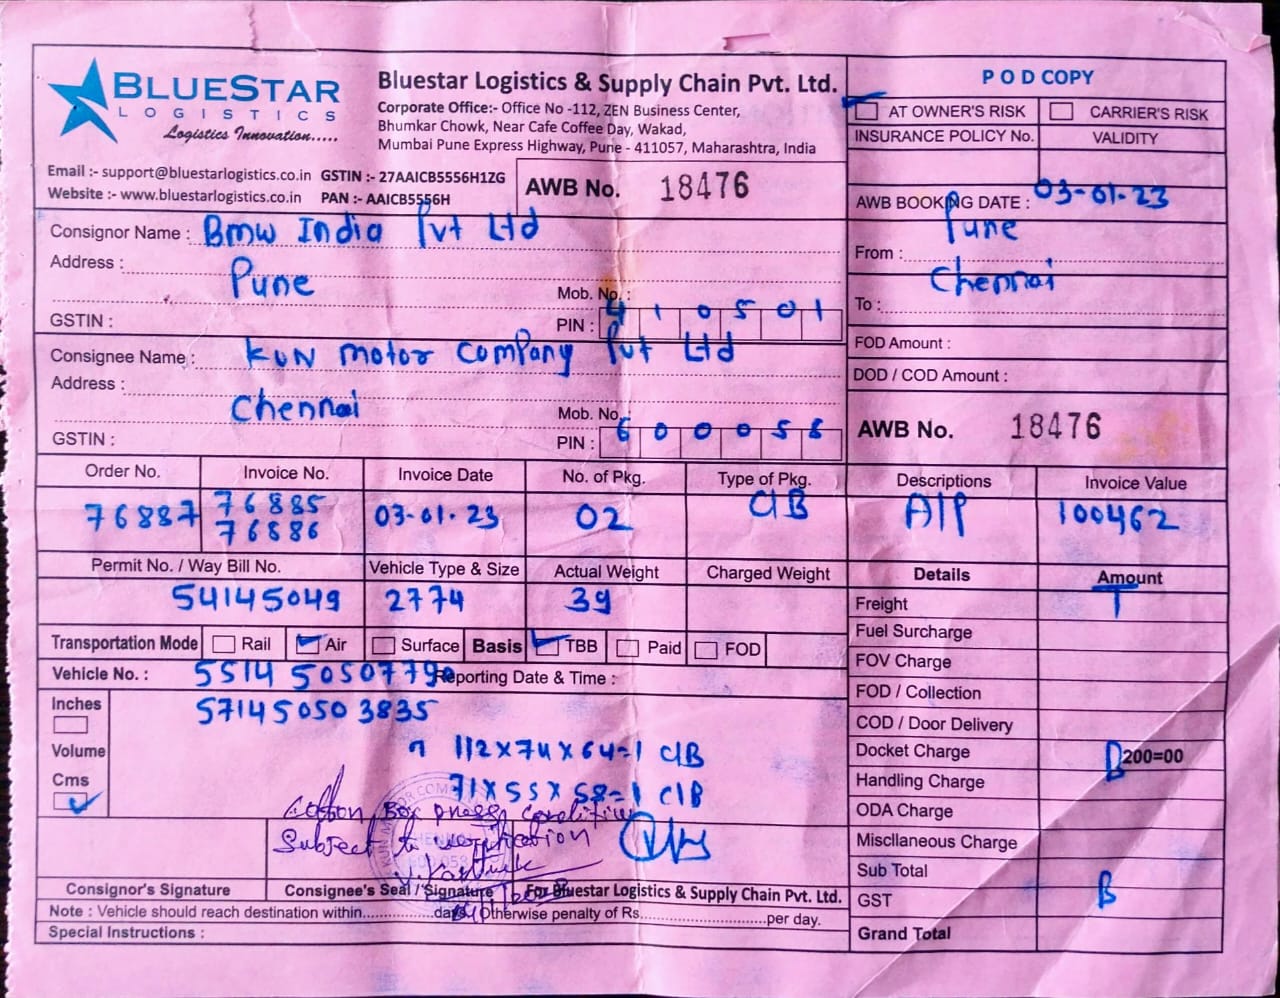 BLUESTAR
LOGISTICS
Logistics Innovation.....
Bluestar Logistics & Supply Chain Pvt. Ltd.
Corporate Office:- Office No -112, ZEN Business Center,
Bhumkar Chowk, Near Cafe Coffee Day, Wakad,
Mumbai Pune Express Highway, Pune - 411057, Maharashtra, India
Email :- support@bluestarlogistics.co.in GSTIN :- 27AAICB5556H1ZG
Website :- www.bluestarlogistics.co.in PAN :- AAICB5556H
AWB No. 18476
POD COPY
AT OWNER'S RISK CARRIER'S RISK
INSURANCE POLICY No. VALIDITY
AWB BOOKING DATE : 03-01-23
From : Pune
To : Chennai
FOD Amount :
DOD / COD Amount :
AWB No. 18476
Consignor Name : Bmw India Pvt Ltd
Address : Pune
Mob. No. :
GSTIN : PIN : 410501
Consignee Name : KUN motor company Pvt Ltd
Address : Chennai
Mob. No.
GSTIN : PIN : 600058
Order No. Invoice No. Invoice Date No. of Pkg. Type of Pkg. Descriptions Invoice Value
76887 76885 03-01-23 02 C/B A/P 100462
76886
Permit No. / Way Bill No. Vehicle Type & Size Actual Weight Charged Weight
54145049 2774 39
Transportation Mode Rail Air Surface Basis TBB Paid FOD
Vehicle No. : 5514 5050779 Reporting Date & Time :
571450503835
Inches
Volume
Cms
112x74x64=1 C/B
71x55x58=1 C/B
Subject to verification
Consignor's Signature Consignee's Seal / Signature For Bluestar Logistics & Supply Chain Pvt. Ltd.
Note : Vehicle should reach destination within................days Otherwise penalty of Rs.............................per day.
Special Instructions :
Details Amount
Freight T
Fuel Surcharge
FOV Charge
FOD / Collection
COD / Door Delivery
Docket Charge B 200=00
Handling Charge
ODA Charge
Miscllaneous Charge
Sub Total
GST B
Grand Total